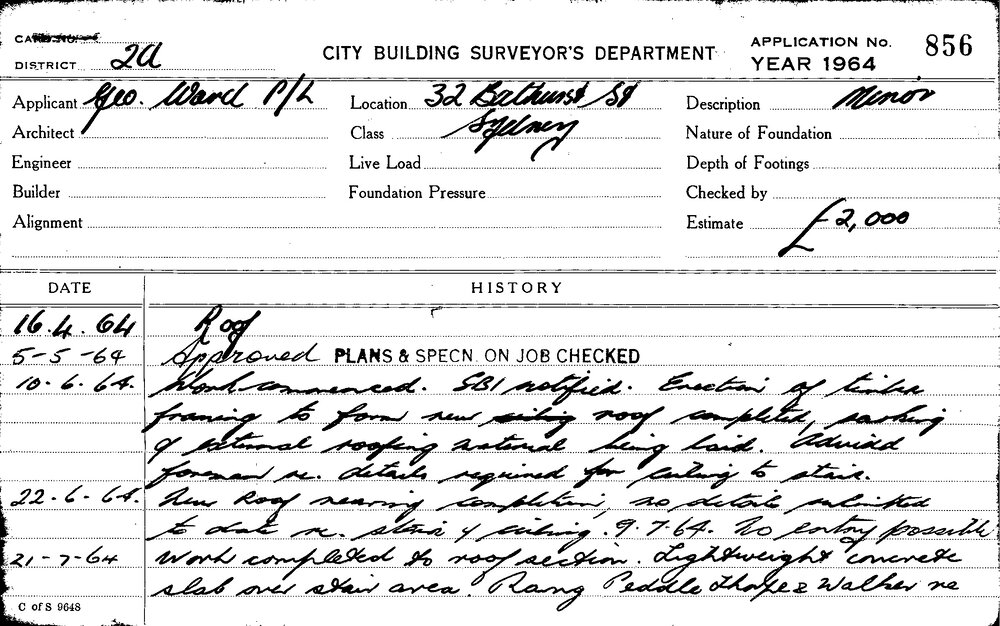 CARD NO.
DISTRICT 2A
CITY BUILDING SURVEYOR'S DEPARTMENT
APPLICATION No. 856
YEAR 1964
Applicant Geo. Ward P/L Location 32 Bathurst St Description Minor
Architect Class Sydney Nature of Foundation
Engineer Live Load Depth of Footings
Builder Foundation Pressure Checked by
Alignment Estimate £2,000
DATE HISTORY
16.4.64 Roof
5-5-64 Approved PLANS & SPECN. ON JOB CHECKED
10.6.64. Work commenced. SBI notified. Erection of timber
framing to form new roof completed,
of external roofing material being laid. Advised
foreman re. details required for ceiling to stair.
22-6-64. New Roof nearing completion, no details submitted
to date re. stair & ceiling. 9.7.64. No entry possible
21-7-64 Work completed to roof section. Lightweight concrete
slab over stair area. Rang Peddle Thorpe & Walker re
C of S 9648